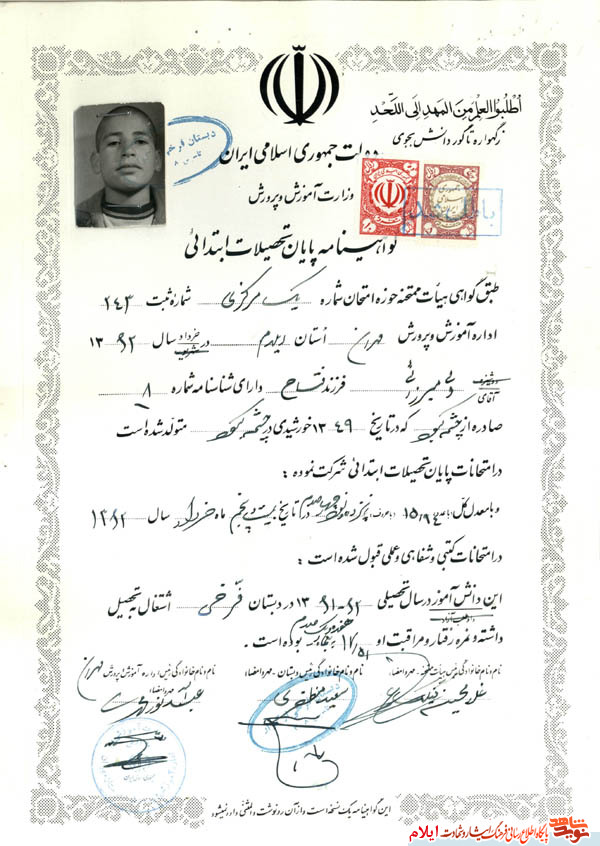 أطلبوا العلم من المهد إلى اللحد
زگهواره تا گور دانش بجوی
دبستان فرخی
دولت جمهوری اسلامی ایران
وزارت آموزش و پرورش
گواهینامه پایان تحصیلات ابتدائی
طبق گواهی هیأت ممتحنه حوزه امتحان شماره یک مرکزی شماره ثبت ۲۴۳
اداره آموزش و پرورش مهران استان ایلام در خرداد سال ۱۳۶۲
آقای ولی میرزائی فرزند فتاح دارای شناسنامه شماره ۸
صادره از چشمه کبود که در تاریخ ۱۳۴۹ خورشیدی در چشمه کبود متولد شده است
در امتحانات پایان تحصیلات ابتدائی شرکت نموده :
و با معدل کل ۱۵/۹۴ پانزده و نود و چهار صدم در تاریخ بیست و پنجم ماه خرداد سال ۱۳۶۲
در امتحانات کتبی و شفاهی و عملی قبول شده است :
این دانش آموز در سال تحصیلی ۶۲-۱۳۶۱ در دبستان فرخی اشتغال به تحصیل
داشته و نمره رفتار و مراقبت او ۱۷/۵۱ بوده است .
نام و نام خانوادگی رئیس هیأت ممتحنه ـ مهر و امضاء: نام و نام خانوادگی رئیس دبستان ـ مهر و امضاء: نام و نام خانوادگی رئیس اداره آموزش و پرورش مهران مهر و امضاء:
این گواهینامه یک نسخه است و از آن رونوشت و المثنی داده نمیشود
نوید شاهد پایگاه اطلاع رسانی فرهنگ ایثار و شهادت ایلام